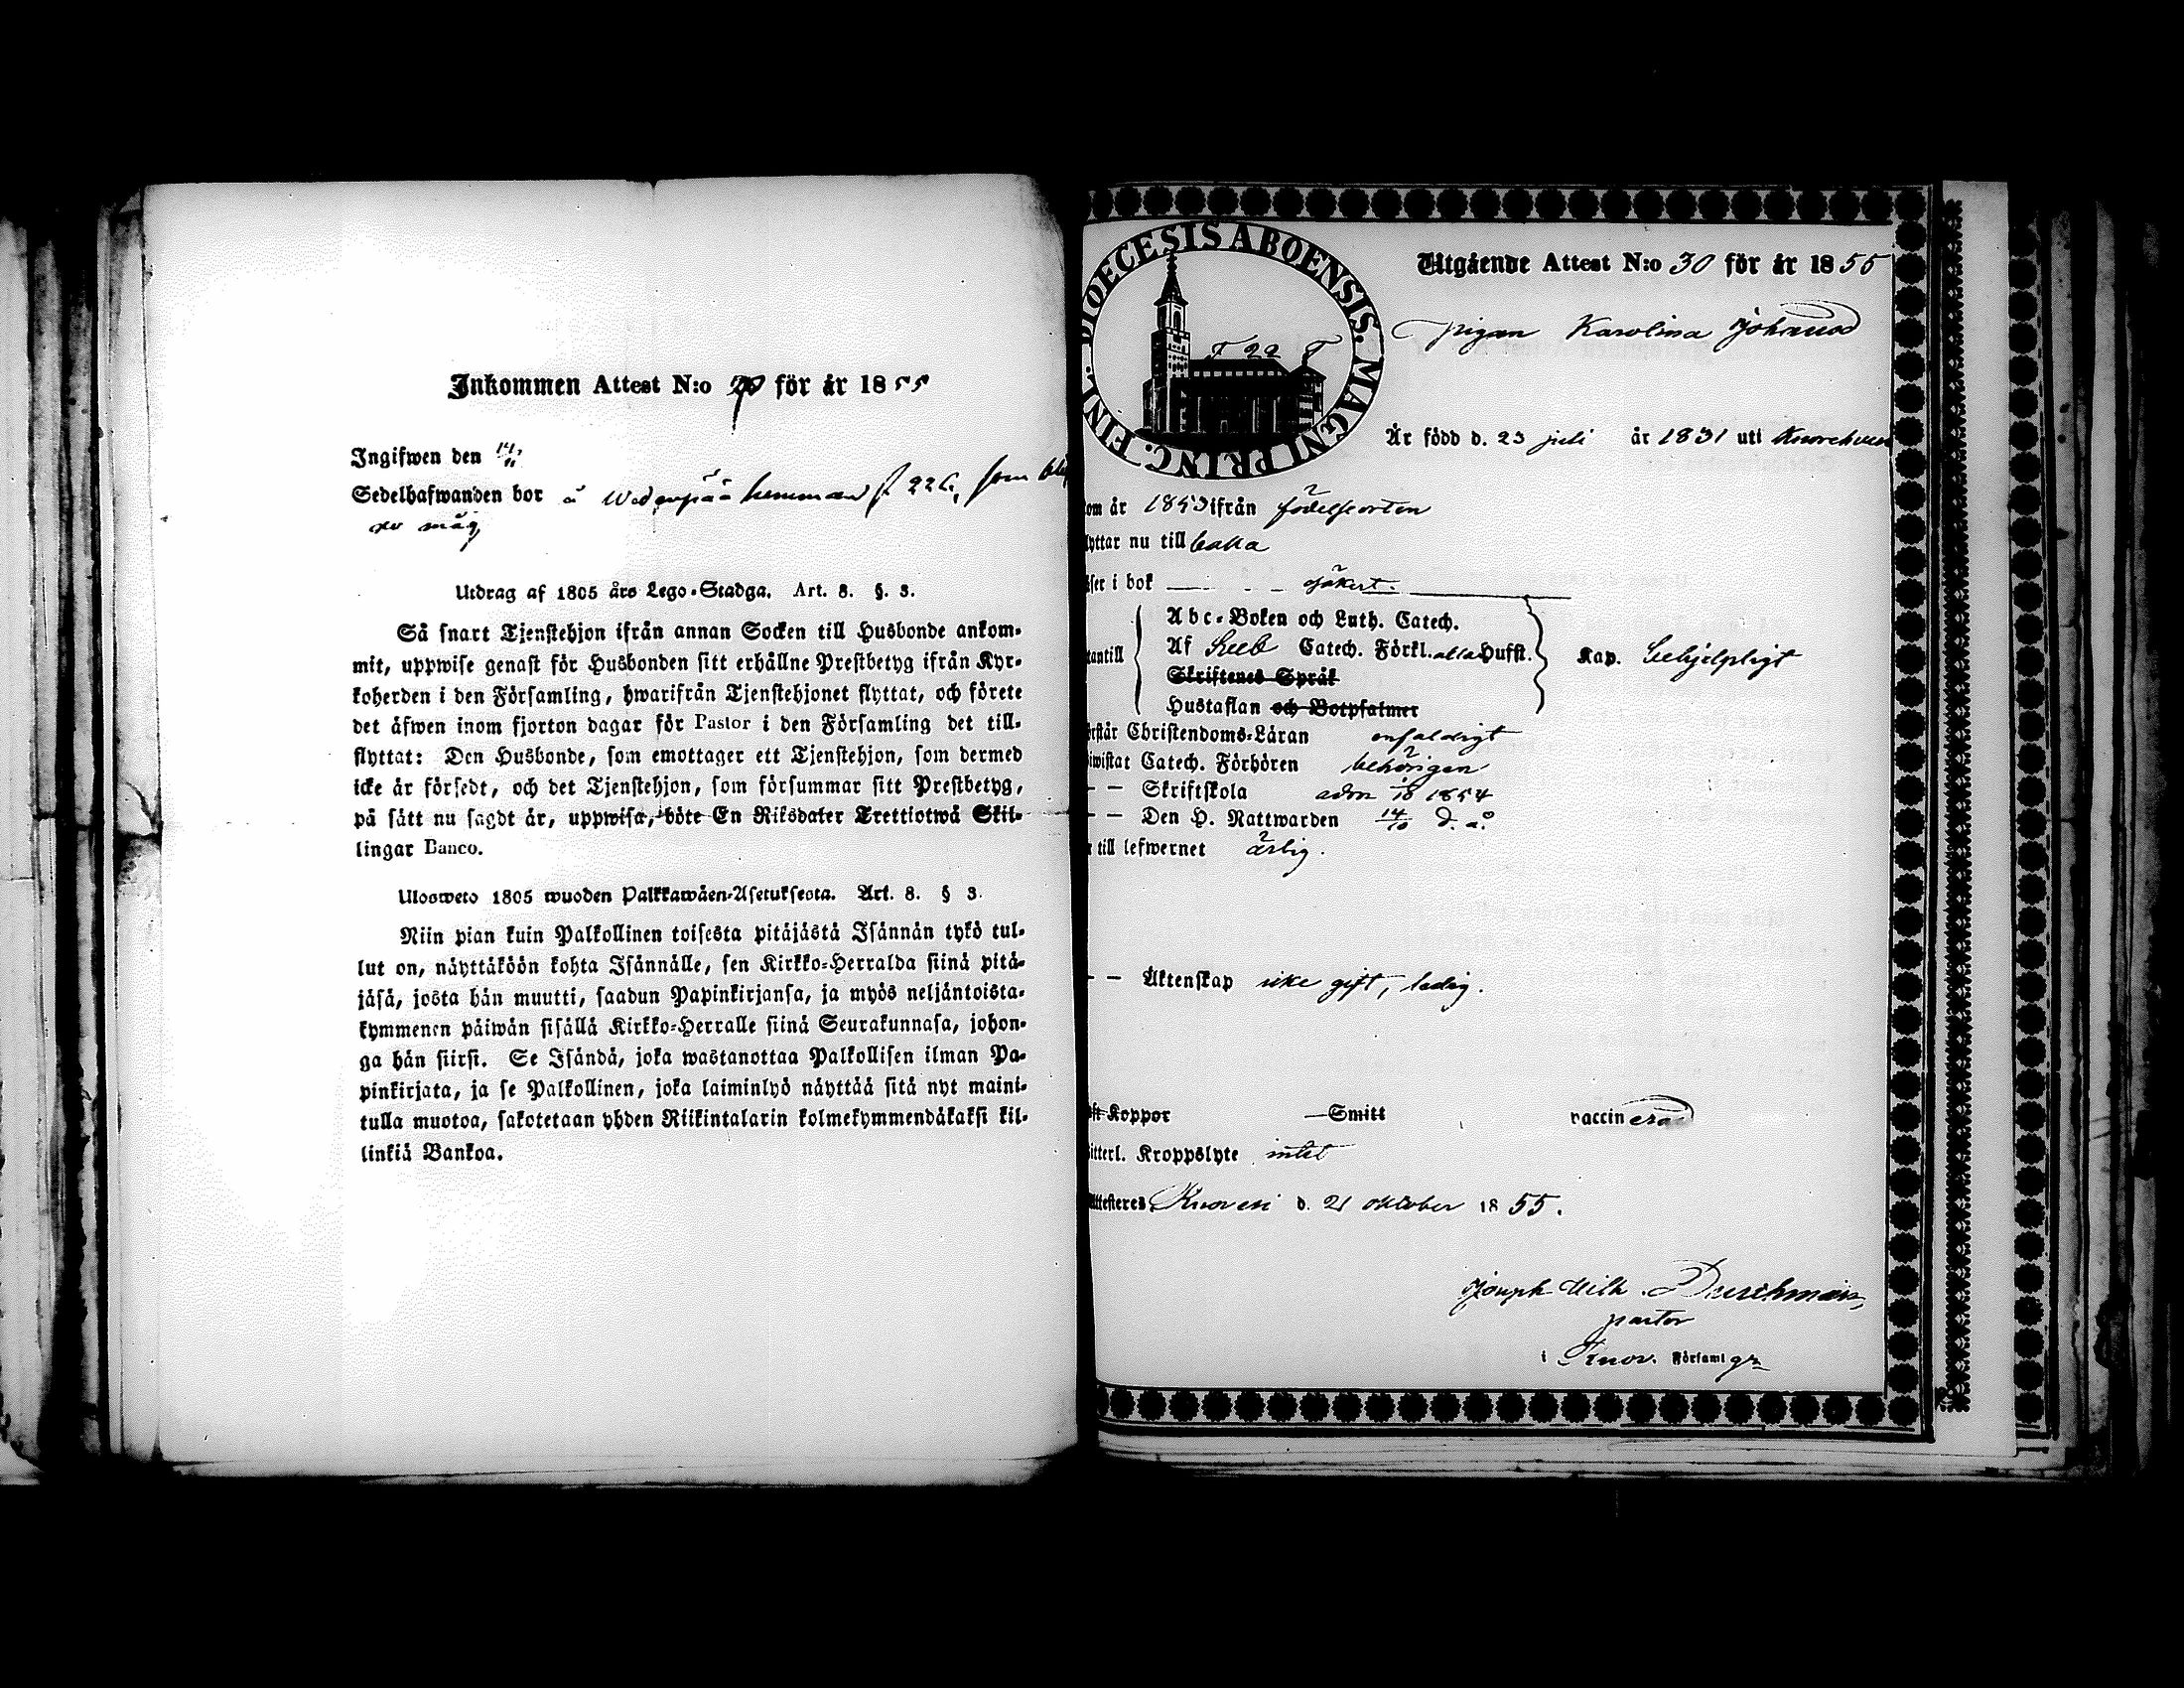 Inkommen Attest N:o för år 1855
Ingifwen den 14/11
Sedelhafwanden bor å hemman f 226, som
måg
Utdrag af 1805 års Lego-Stadga. Art. 8. §. 3.
Så snart Tjenstehjon ifrån annan Socken till Husbonde ankom-
mit, uppwise genast för Husbonden sitt erhållne Prestbetyg ifrån Kyr-
koherden i den Församling, hwarifrån Tjenstehjonet flyttat, och förete
det äfwen inom fjorton dagar för Pastor i den Församling det till-
flyttat: Den Husbonde, som emottager ett Tjenstehjon, som dermed
icke är försedt, och det Tjenstehjon, som försummar sitt Prestbetyg,
på sätt nu sagdt är, uppwisa, böte En Riksdaler Trettiotwå Skil-
lingar Banco.
Ulosweto 1805 wuoden Palkkawäen-Asetuksesta. Art. 8. § 3.
Niin pian kuin Palkollinen toisesta pitäjästä Isännän tykö tul-
lut on, näyttäköön kohta Isännälle, sen Kirkko-Herralda siinä pitä-
jäsä, josta hän muutti, saadun Papinkirjansa, ja myös neljäntoista-
kymmenen päiwän sisällä Kirkko-Herralle siinä Seurakunnasa, johon-
ga hän siirsi. Se Isändä, joka wastanottaa Palkollisen ilman Pa-
pinkirjata, ja se Palkollinen, joka laiminlyö näyttää sitä nyt maini-
tulla muotoa, sakotetaan yhden Riikintalarin kolmekymmendäkaksi kil-
linkiä Bankoa.
DIOECESIS ABOENSIS. MAGNI PRINC. FINL.
F 22 T
Utgående Attest N:o 30 för år 1855
pigan Karolina Johansd
Är född d. 23 juli år 1831 uti
om år 1853 ifrån födelseorten
lyttar nu till
äser i bok säkert.
Abc-Boken och Luth. Catech.
Af Seeb Catech. Förkl. alla Hufst.
tantill Kap. behjelpligt
Skriftenes Språk
Hustaflan och Botpsalmer
örstår Christendoms-Läran enfaldigt
iwistat Catech. Förhören behörigen
– – Skriftskola adm 18 1854
– – Den H. Nattwarden 14/10 d. å.
till lefwernet ärlig.
– – Äktenskap icke gift, ledig.
Koppor Smitt vaccinerad
itterl. Kroppslyte intet
Attesteras d. 21 oktober 1855.
Joseph Wilh.
pastor
i Församl